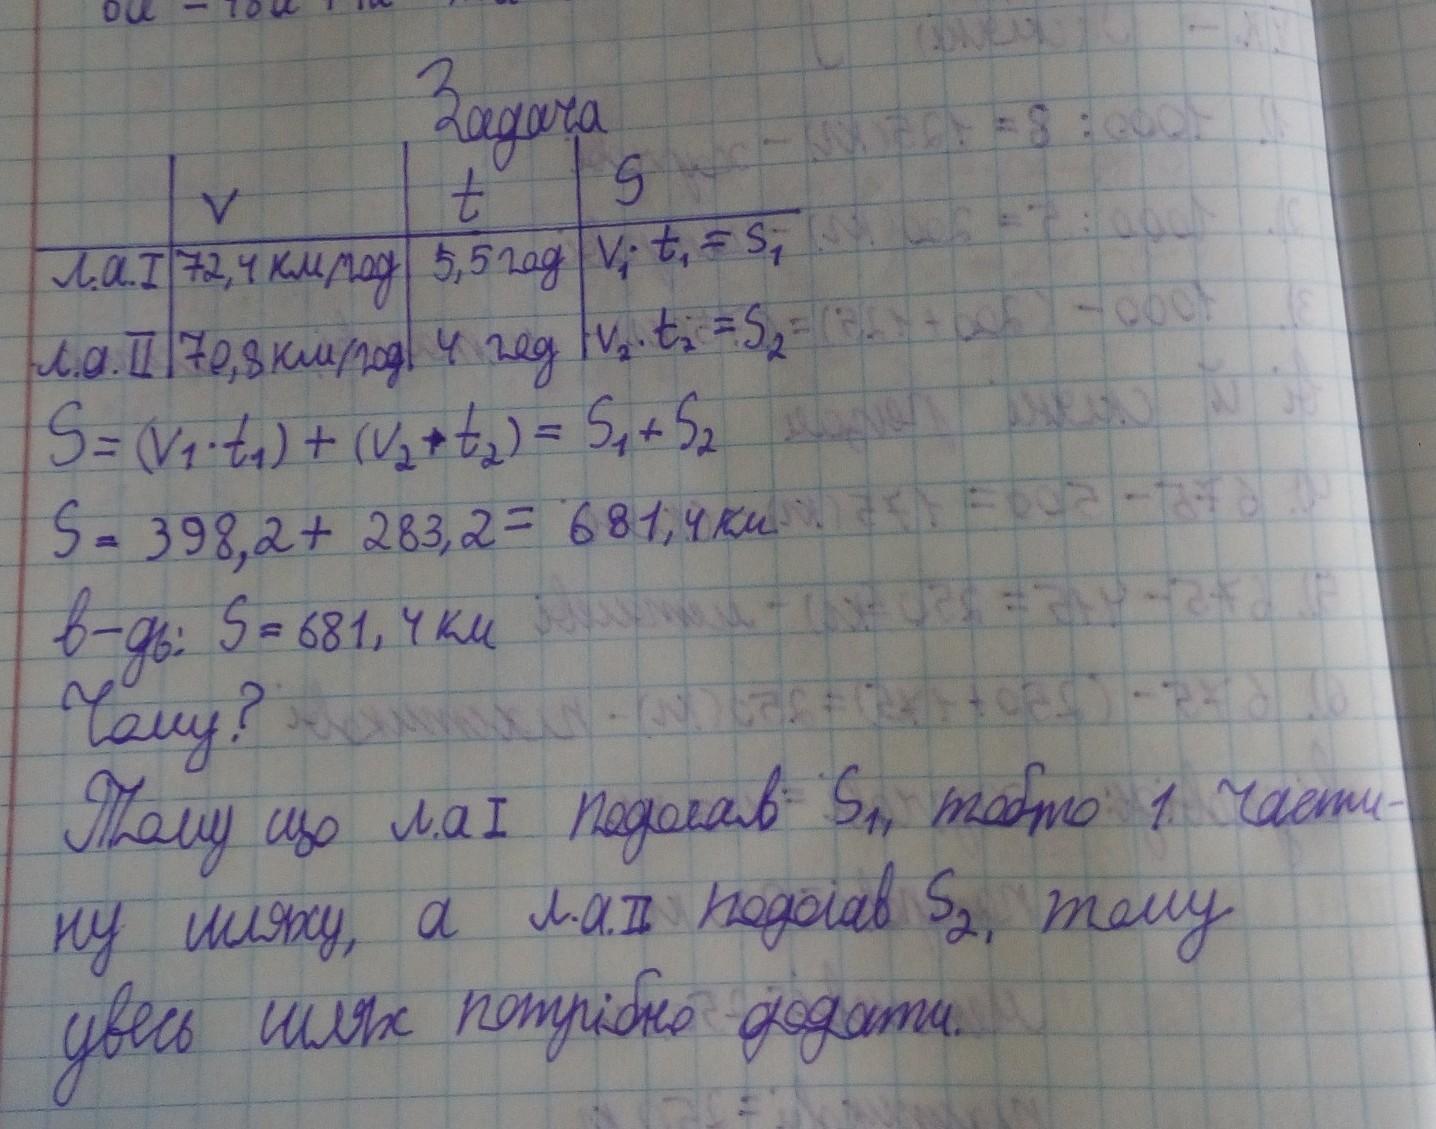 Задача
V t S
л.а.I 72,4 км/год 5,5 год V₁ · t₁ = S₁
л.а.II 70,8 км/год 4 год V₂ · t₂ = S₂
S = (V₁ · t₁) + (V₂ · t₂) = S₁ + S₂
S = 398,2 + 283,2 = 681,4 км
в-дь: S = 681,4 км
Чому?
Тому що л.а I подолав S₁, тобто 1 части-
ну шляху, а л.а.II подолав S₂, тому
увесь шлях потрібно додати.